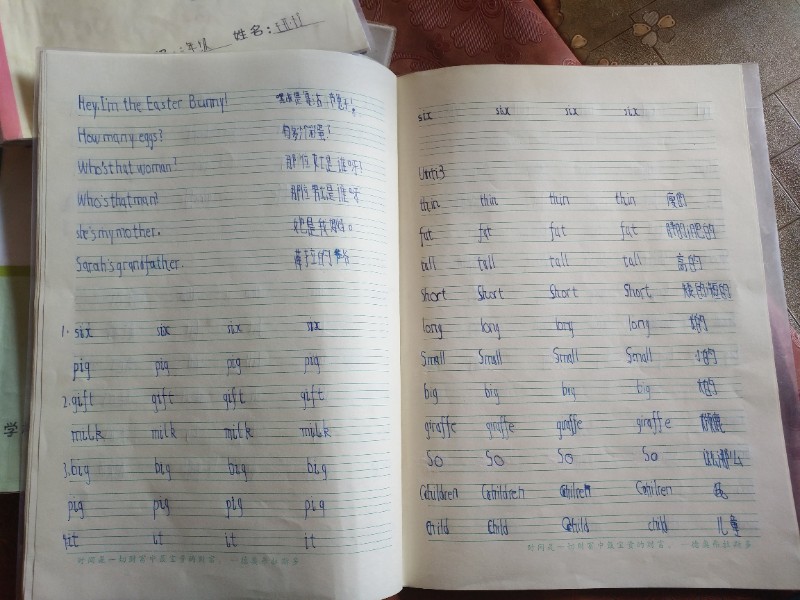 年级 姓名:
Hey, I'm the Easter Bunny!
How many eggs? 有多少个蛋?
Who's that woman? 那位女士是谁呀?
Who's that man? 那位男士是谁呀
she's my mother. 她是我妈妈。
Sarah's grandfather. 萨拉的爷爷
1. six six six six
pig pig pig pig
2. gift gift gift gift
milk milk milk milk
3. big big big big
pig pig pig pig
it it it it
时间是一切财富中最宝贵的财富。—德奥弗拉斯多
six six six six
Unit3
thin thin thin thin 瘦的
fat fat fat fat 胖的;肥的
tall tall tall tall 高的
short short short short 矮的;短的
long long long long 长的
Small Small Small Small 小的
big big big big 大的
giraffe giraffe giraffe giraffe 长颈鹿
So So So So 这么;那么
Children Children
Child Child Child child 儿童
时间是一切财富中最宝贵的财富。—德奥弗拉斯多
学